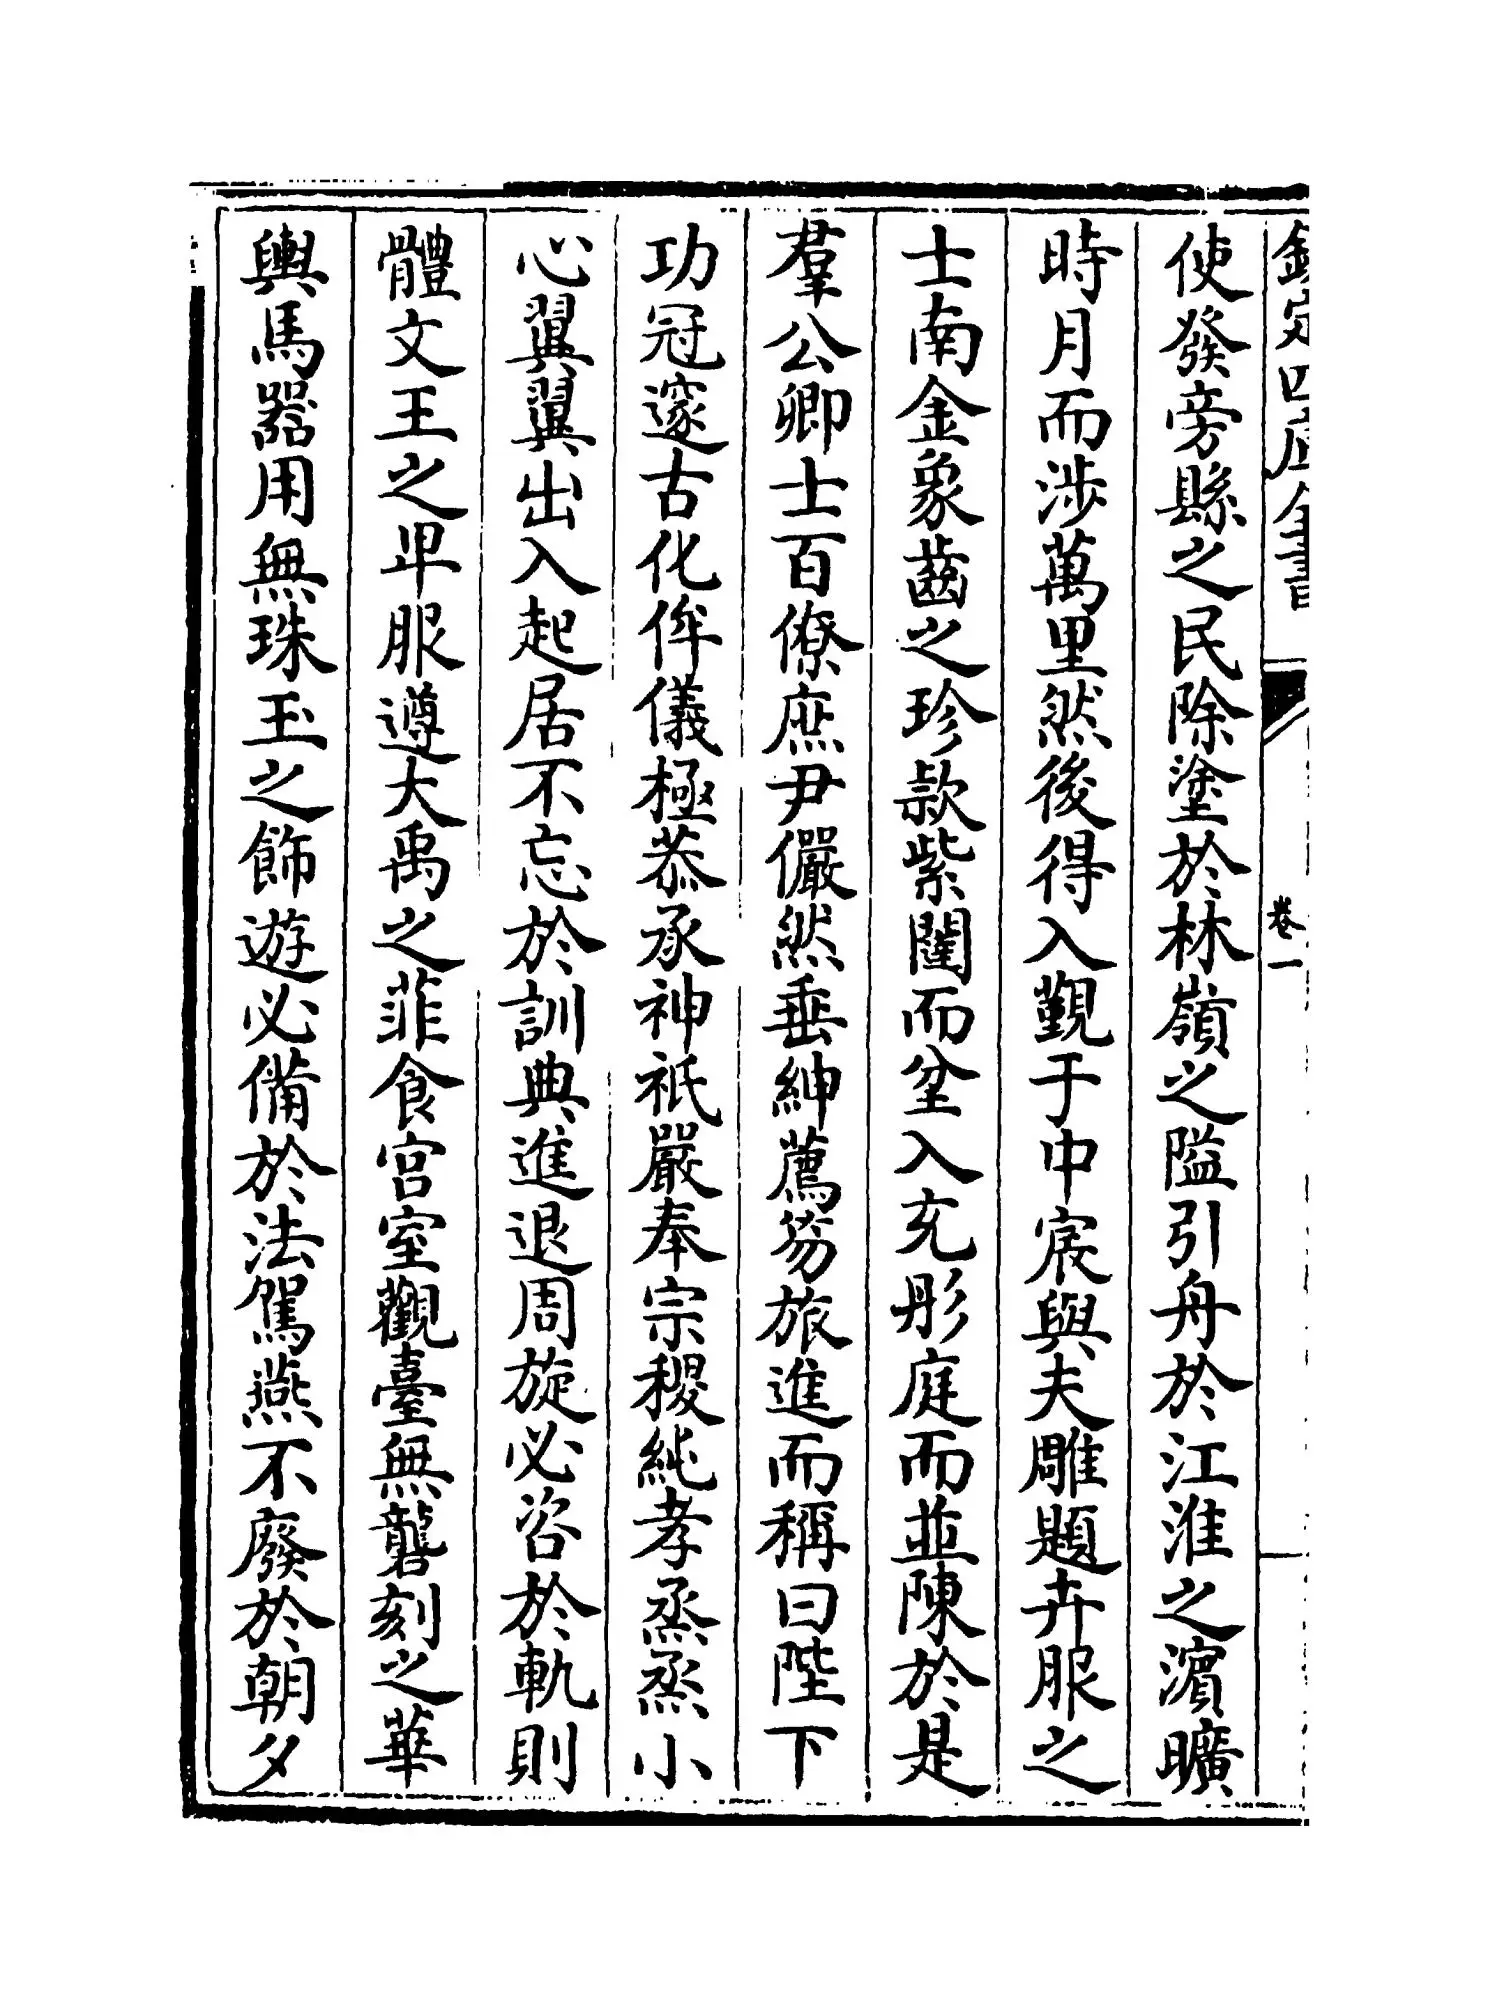 欽定四庫全書
卷一
使發旁縣之民除塗於林嶺之隘引舟於江淮之濵曠
時月而涉萬里然後得入覲于中宸與夫雕題卉服之
士南金象齒之珍款紫闥而坌入充彤庭而並陳於是
羣公卿士百僚庶尹儼然垂紳薦笏旅進而稱曰陛下
功冠邃古化侔儀極恭承神祇嚴奉宗稷純孝烝烝小
心翼翼出入起居不忘於訓典進退周旋必咨於軌則
體文王之卑服遵大禹之菲食宫室觀臺無礱刻之華
輿馬器用無珠玉之飾遊必備於法駕燕不廢於朝夕